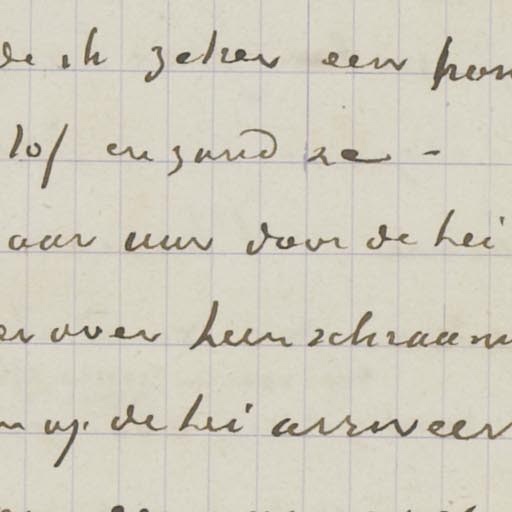 de ik zeker een hon
lof en zand ze -
aar uur door de hei
er over heen schraam
n op de hei